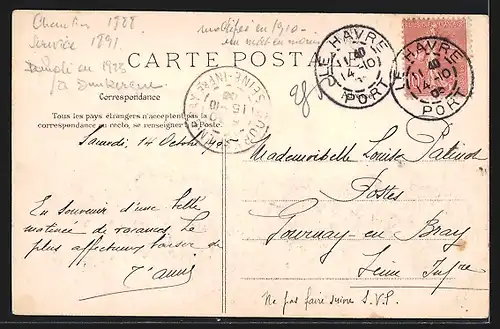 Chantier 1888
Service 1891
Démoli en 1923
à Dunkerque
modifié en 1910
un mât en moins
CARTE POSTALE
Correspondance
Tous les pays étrangers n'acceptent pas la
correspondance au recto, se renseigner à la Poste.
LE HAVRE
14-10
05
PORT
LE HAVRE
14-10
05
PORT
SEINE-INFRE
Samedi, 14 Octobre
Mademoiselle Louise
Postes
Gournay-en-Bray
Seine Infre
En souvenir d'une belle
matinée de vacances. Le
plus affectueux baiser de
Ne pas faire suivre S.V.P.